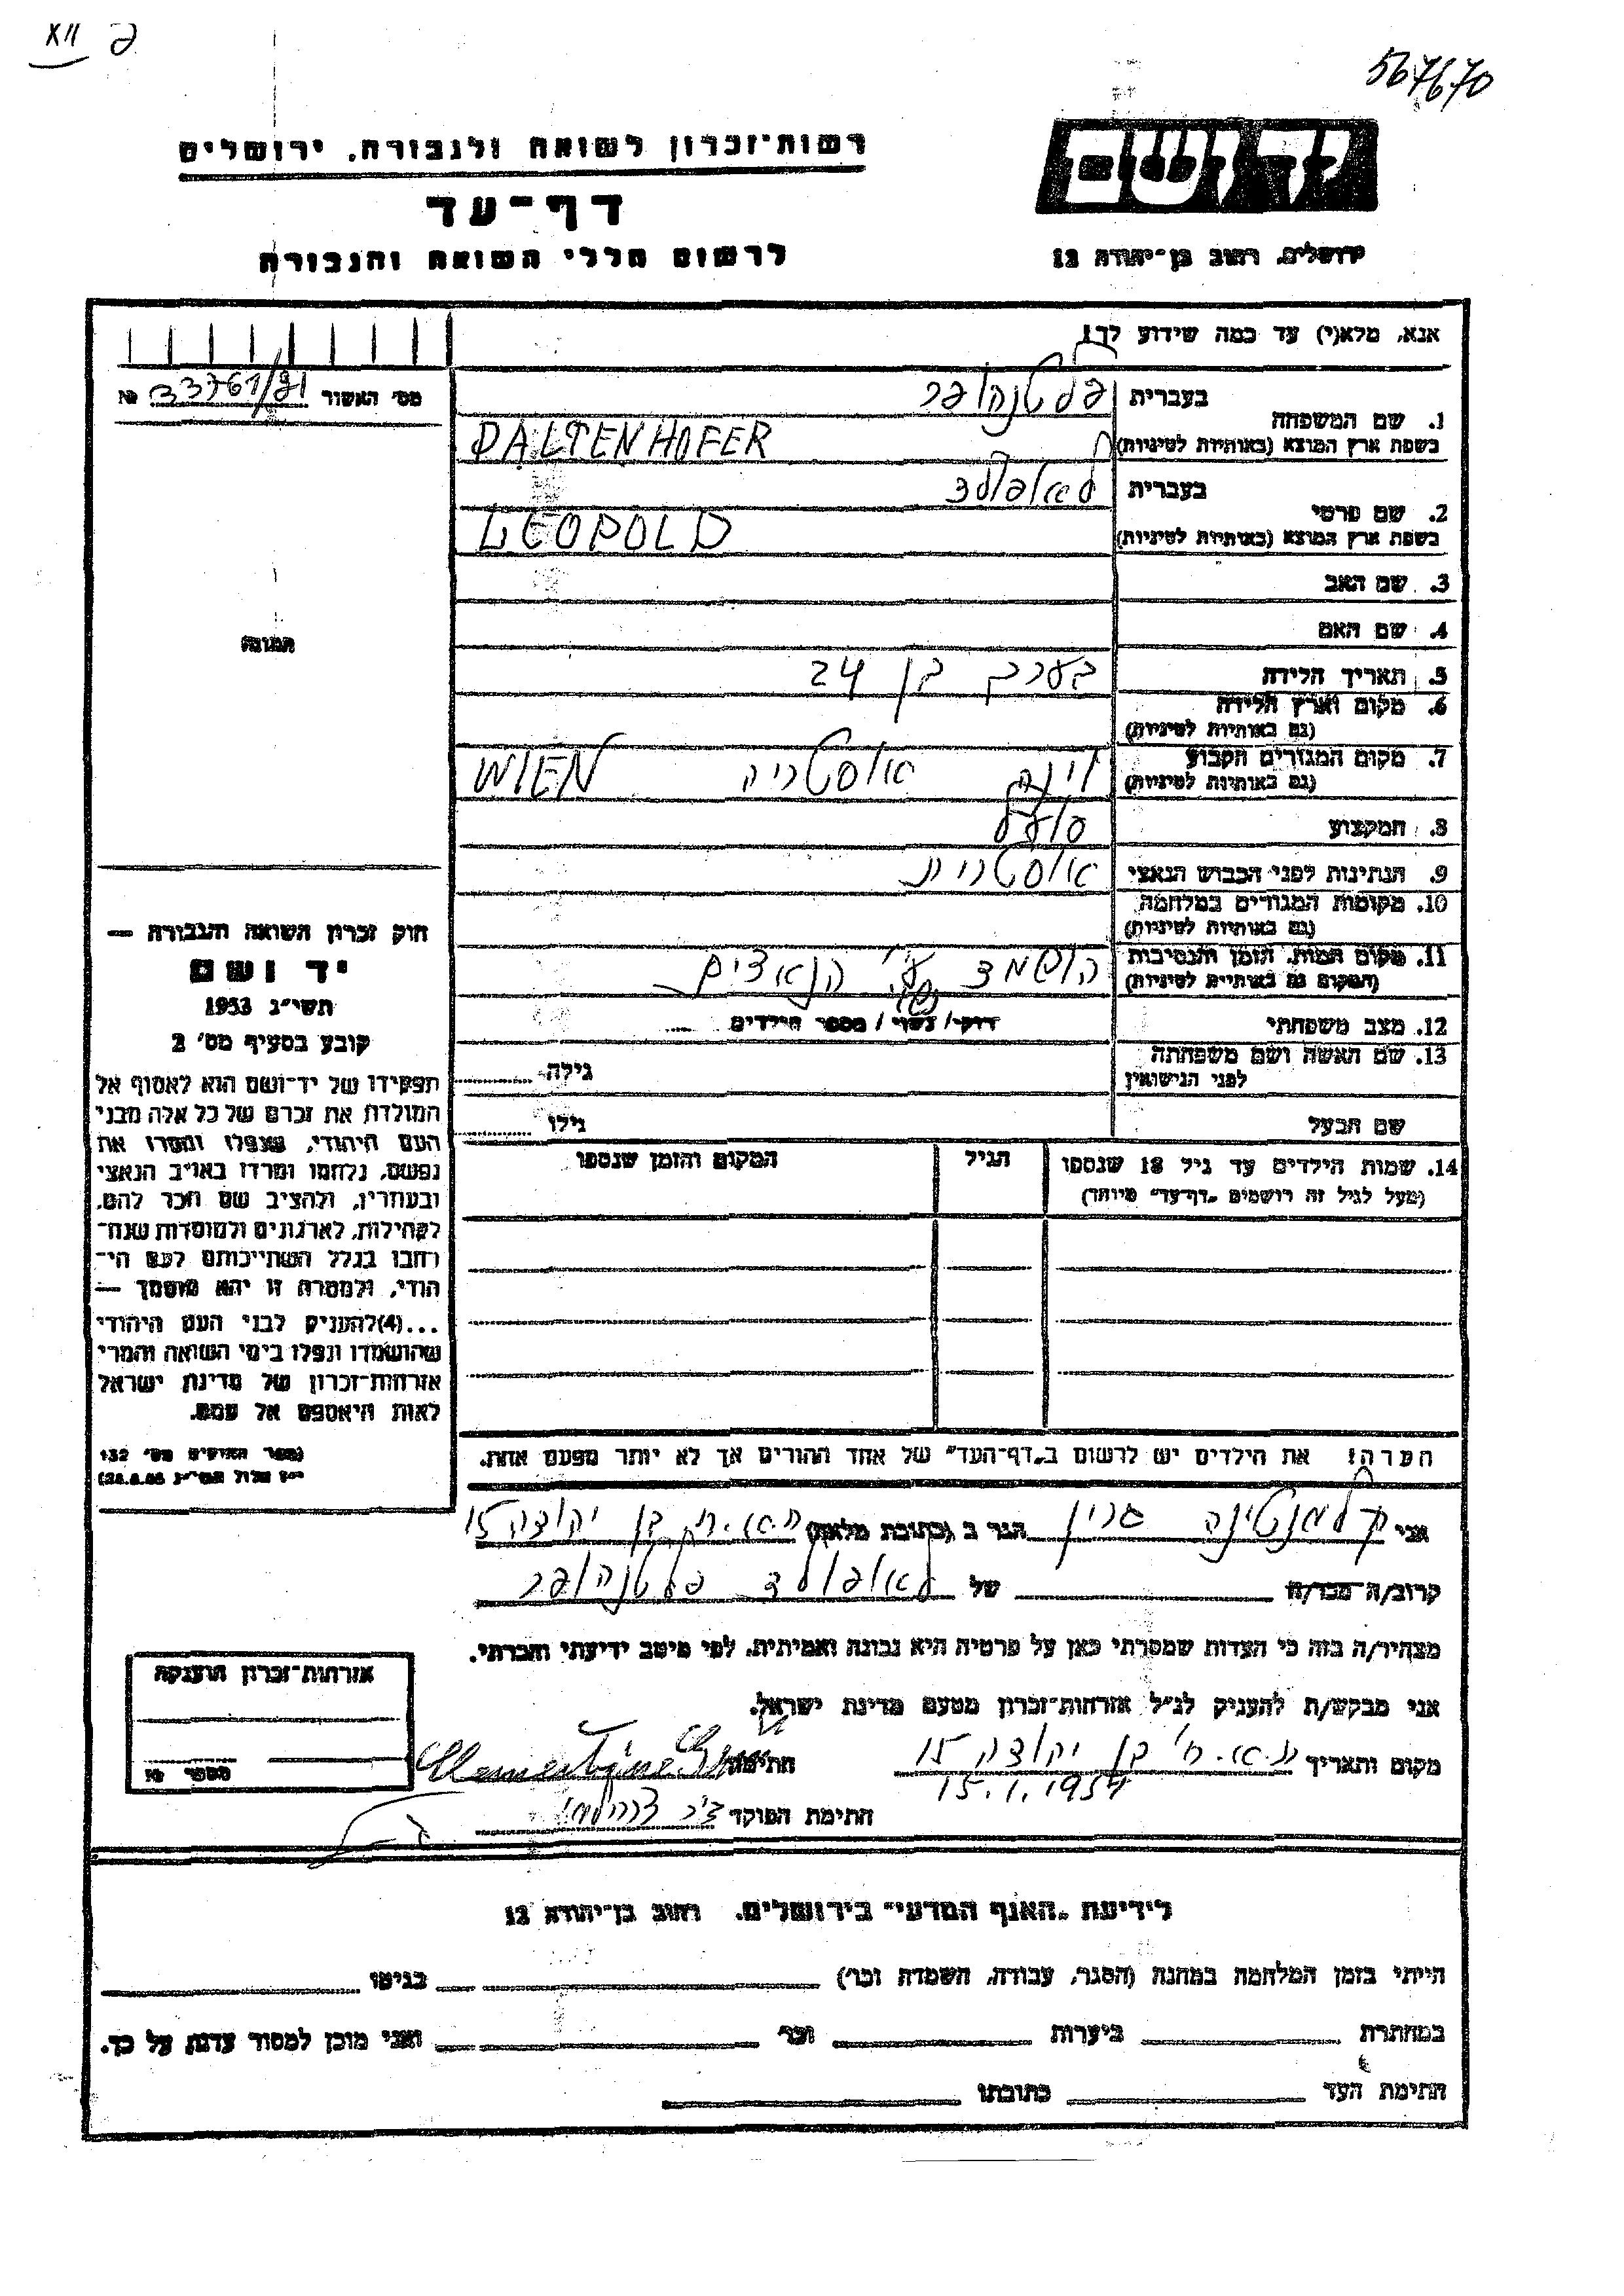 XII פ
567670
יד ושם
ירושלים, רחוב בן־יהודה 12
רשות־זכרון לשואה ולגבורה, ירושלים
דף־עד
לרשום חללי השואה והגבורה
אנא, מלא(י) עד כמה שידוע לך!
מס' האשור 33761/21 №
1. שם המשפחה בעברית פלטנהופר
בשפת ארץ המוצא (באותיות לטיניות) PALTENHOFER
2. שם פרטי בעברית לאופולד
בשפת ארץ המוצא (באותיות לטיניות) LEOPOLD
3. שם האב
4. שם האם
5. תאריך הלידה בערך בן 24
6. מקום וארץ הלידה
(גם באותיות לטיניות)
7. מקום המגורים הקבוע וינה אוסטריה WIEN
(גם באותיות לטיניות)
8. המקצוע פועל
9. הנתינות לפני הכבוש הנאצי אוסטרית
10. מקומות המגורים במלחמה
(גם באותיות לטיניות)
11. מקום המות, הזמן והנסיבות הושמד ע"י הנאצים
(המקום גם באותיות לטיניות)
12. מצב משפחתי רווק / נשוי / מספר הילדים
13. שם האשה ושם משפחתה גילה
לפני הנישואין
שם הבעל גילו
14. שמות הילדים עד גיל 18 שנספו הגיל המקום והזמן שנספו
(מעל לגיל זה רושמים "דף־עד" מיוחד)
הערה! את הילדים יש לרשום ב"דף־העד" של אחד ההורים אך לא יותר מפעם אחת.
התמונה
חוק זכרון השואה והגבורה —
יד ושם
תשי"ג 1953
קובע בסעיף מס' 2
תפקידו של יד־ושם הוא לאסוף אל
המולדת את זכרם של כל אלה מבני
העם היהודי, שנפלו ומסרו את
נפשם, נלחמו ומרדו באויב הנאצי
ובעוזריו, ולהציב שם וזכר להם,
לקהילות, לארגונים ולמוסדות שנח־
רבו בגלל השתייכותם לעם הי־
הודי, ולמטרה זו יהא מוסמך —
...(4)להעניק לבני העם היהודי
שהושמדו ונפלו בימי השואה והמרי
אזרחות־זכרון של מדינת ישראל
לאות היאספם אל עמם.
(ספר החוקים מס' 132
אני קלמנטינה גרין הגר ב (כתובת מלאה) ת.א. רח' בן יהודה 15
קרוב/ה מכר/ה של לאופולד פלטנהופר
מצהיר/ה בזה כי העדות שמסרתי כאן על פרטיה היא נכונה ואמיתית, לפי מיטב ידיעתי והכרתי.
אני מבקש/ת להעניק לנ"ל אזרחות־זכרון מטעם מדינת ישראל.
מקום ותאריך ת.א. רח' בן יהודה 15 חתימה Clementine
15.1.1957
חתימת הפוקד
אזרחות־זכרון הוענקה
מספר №
לידיעת "האגף המדעי" בירושלים, רחוב בן־יהודה 12
הייתי בזמן המלחמה במחנה (הסגר, עבודה, השמדה וכו') בגיטו
במחתרת ביערות וכו' ואני מוכן למסור עדות על כך.
חתימת העד כתובתו